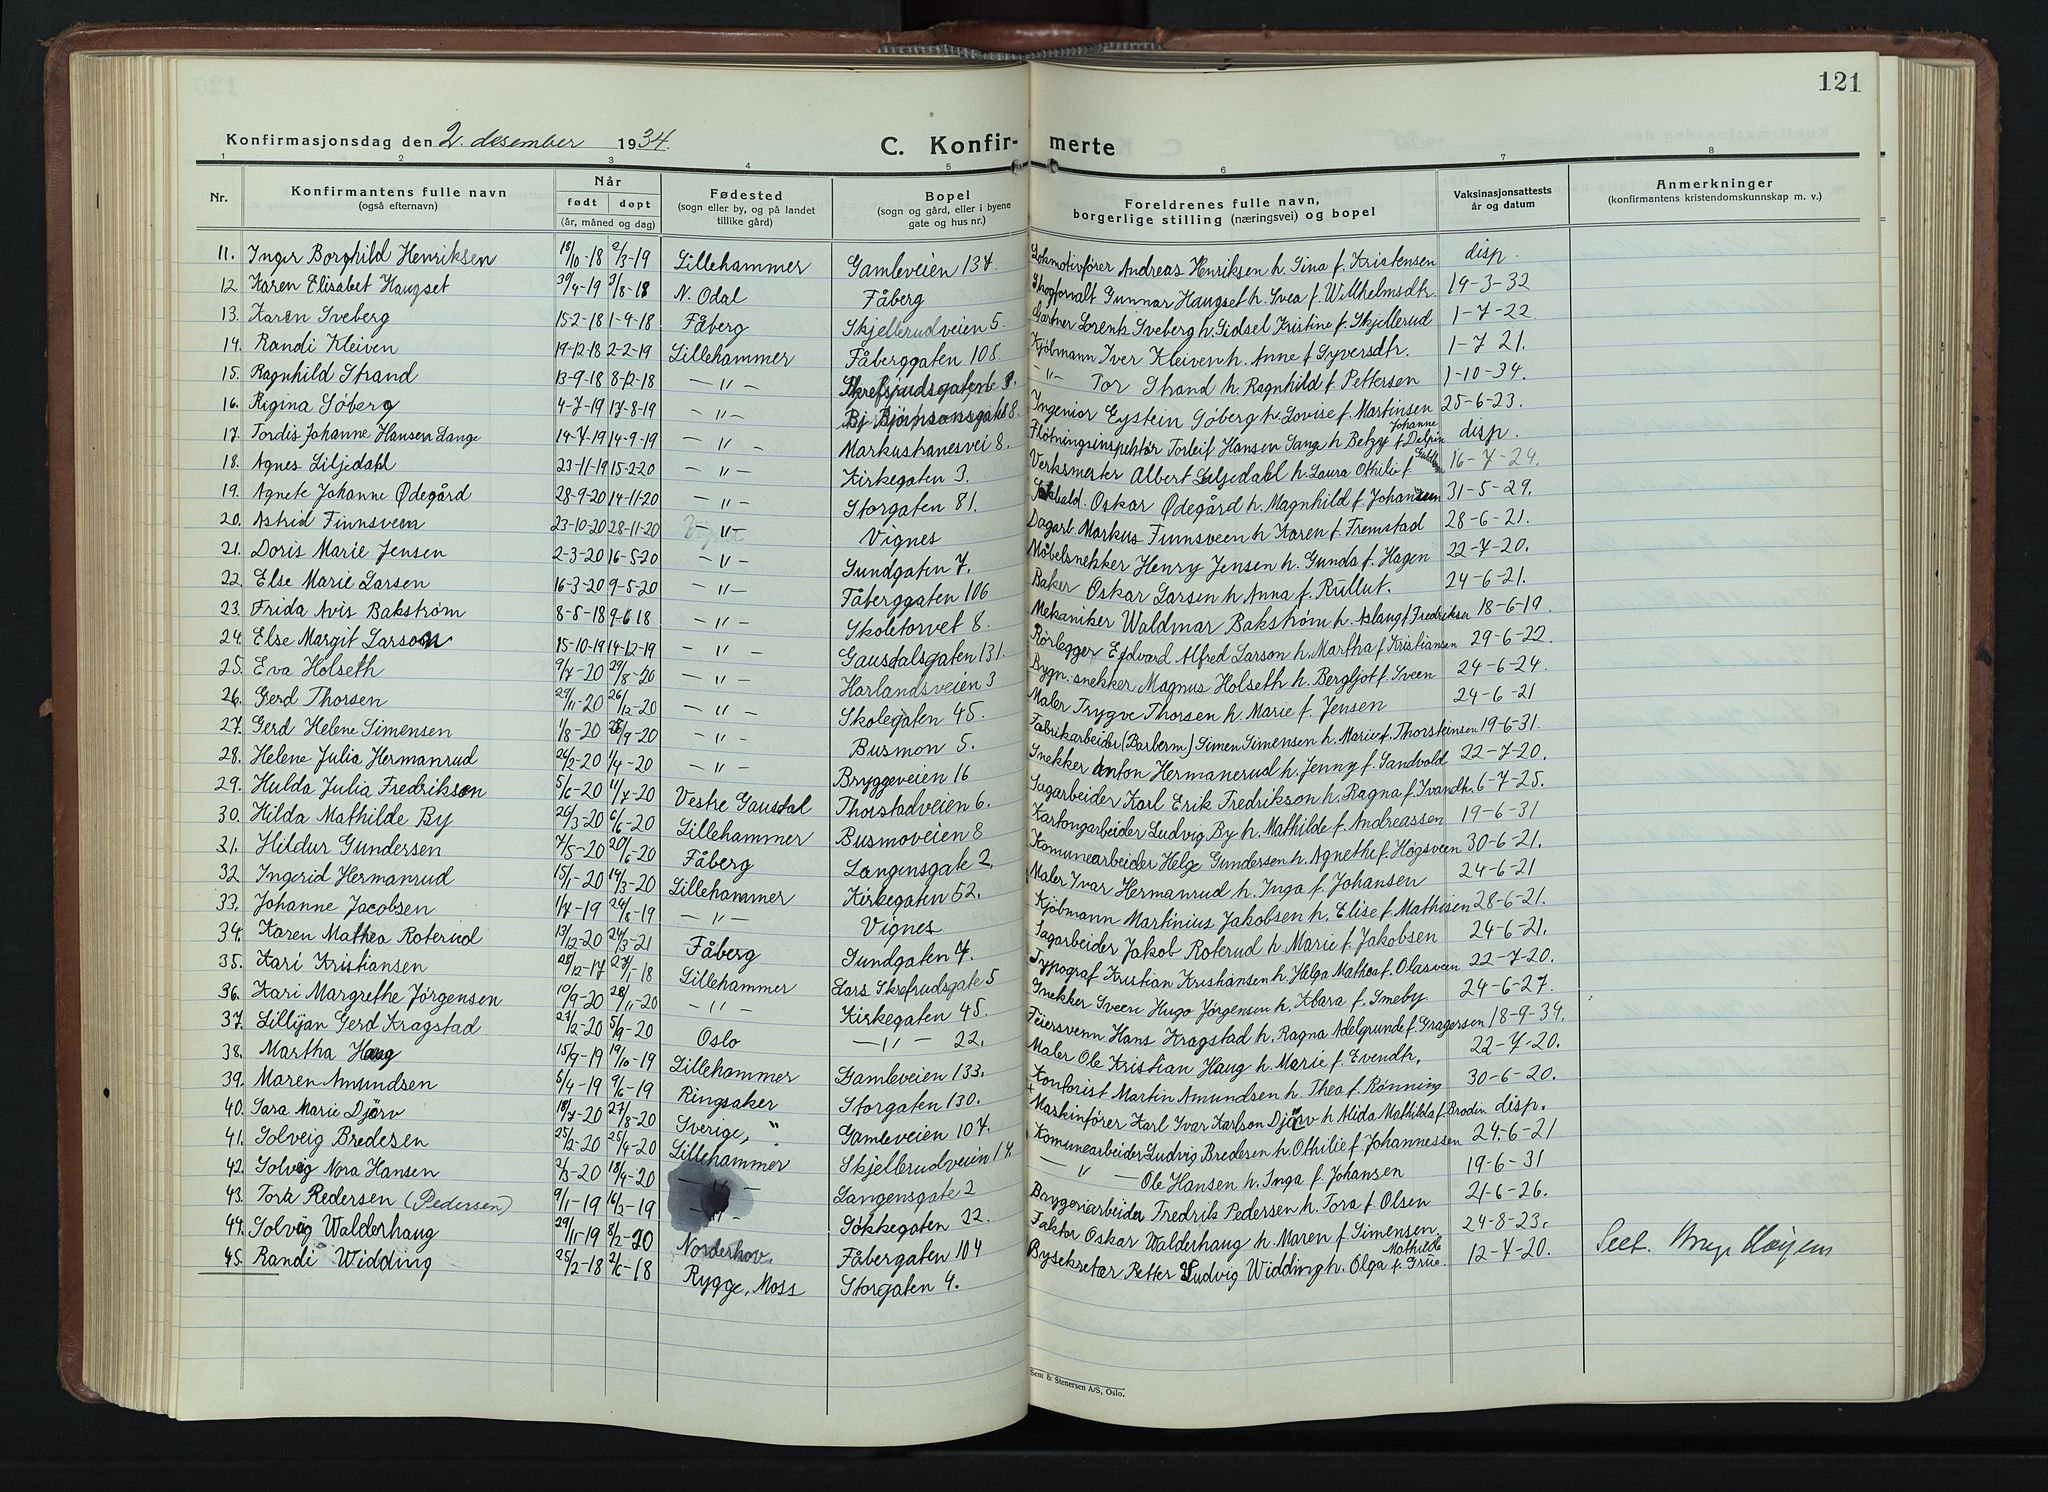 121
Konfirmasjonsdag den 2. desember 1934.
C. Konfir- merte
1 2 3 4 5 6 7 8
Nr. Konfirmantens fulle navn (også efternavn) Når født døpt (år, måned og dag) Fødested (sogn eller by, og på landet tillike gård) Bopel (sogn og gård, eller i byene gate og hus nr.) Foreldrenes fulle navn, borgerlige stilling (næringsvei) og bopel Vaksinasjonsattests år og datum Anmerkninger (konfirmantens kristendomskunnskap m. v.)
11. Inger Borghild Henriksen 18/10-18 2/3-19 Lillehammer Gamleveien 137. Lokomotivfører Andreas Henriksen h. Sina f. Kristensen disp.
12. Karen Elisabet Haugset 30/4-19 3/8-18 N. Odal Fåberg Skogforvalt Gunnar Haugset h. Svea f. Wilhelmsdtr. 19-3-32
13. Karen Sveberg 15-2-18 1-9-18 Fåberg Skjellerudveien 5. Gartner Lorents Sveberg h. Sidsel Kristine f. Skjellerud 1-7-22
14. Randi Kleiven 19-12-18 2-2-19 Lillehammer Fåberggaten 108. Kjøbmann Iver Kleiven h. Anne f. Syversdtr. 1-7 21.
15. Ragnhild Strand 13-9-18 8-12-18 —"— Skrefsrudsgatente 9. —"— Tor Strand h. Ragnhild f. Pettersen 1-10-34.
16. Regina Søberg 4-7-19 17-8-19 —"— Bj Bjørnsonsgate 8. Ingeniør Eystein Søberg h. Lovise f. Martinsen 25-6-23.
17. Tordis Johanne Hansen Lange 14-7-19 14-9-19 —"— Markushanesvei 8. Fløtningsinspektør Torleif Hansen Lange h Betzy Johanne f Delpin disp.
18. Agnes Liljedahl 23-11-19 15-2-20 —"— Kirkegaten 3. Verksmester Albert Liljedahl h. Laura Othilie f 16-7-24.
19. Agnete Johanne Ødegård 28-9-20 14-11-20 —"— Storgaten 81. Oskar Ødegård h. Magnhild f. Johansen 31-5-29.
20. Astrid Finnsveen 23-10-20 28-11-20 —"— Vignes Dagarb. Markus Finnsveen h Karen f. Fremstad 28-6-21.
21. Doris Marie Jensen 2-3-20 16-5-20 —"— Sundgaten 7. Møbelsnekker Henry Jensen h. Gunda f. Hagen 22-7-20.
22. Else Marie Larsen 16-3-20 9-5-20 —"— Fåberggaten 106 Baker Oskar Larsen h Anna f. Rullut. 24-6-21.
23. Frida Avis Bakstrøm 8-5-18 9-6 18 —"— Skoletorvet 8. Mekaniker Waldmar Bakstrøm h. Aslaug f Fredriksen 18-6-19.
24. Else Margit Larson 15-10-19 14-12-19 —"— Gausdalsgaten 131. Rørlegger Edvard Alfred Larson h. Martha f Kristiansen 29-6-22.
25. Eva Holseth 9/7-20 29/8-20 —"— Harlandsveien 3 Bygn. snekker Magnus Holseth h. Bergljot f. Sveen 24-6-24.
26. Gerd Thorsen 29/11-20 26/12-20 —"— Skolegaten 45. Maler Trygve Thorsen h. Marie f. Jensen 24-6-21
27. Gerd Helene Simensen 1/8-20 26/9-20 —"— Busmon 5. Fabrikarbeider (Barberm) Simen Simensen h. Marie f. Thorsteinsen 19-6-31.
28. Helene Julia Hermanrud 26/2-20 1/4-20 —"— Bryggeveien 16 Snekker Anton Hermanerud h. Jenny f. Sandvold 22-7-20.
29. Hulda Julia Fredrikson 5/6-20 11/7-20 Vestre Gausdal Thorstadveien 6. Sagarbeider Karl Erik Fredrikson h. Ragna f. Ivandtr. 6-7-25.
30. Hilda Mathilde By 26/3-20 6/6-20 Lillehammer Busmoveien 8 Kartongarbeider Ludvig By h. Mathilde f. Andreassen 19-6-31
31. Hildur Gundersen 7/5-20 20/6-20 Fåberg Langensgate 2. Komunearbeider Helge Gundersen h. Agnethe f. Høgsveen 30-6-21.
32. Ingerid Hermanrud 15/1-20 14/3-20 Lillehammer Kirkegaten 52. Maler Ivar Hermanrud h. Inga f. Johansen 24-6-21
33. Johanne Jacobsen 1/7-19 24/8-19 —"— Vignes Kjøbmann Martinius Jakobsen h. Elise f. Mathisen 28-6-21.
34. Karen Mathea Roterud 13/12-20 24/3-21 Fåberg Sundgaten 7. Sagarbeider Jakob Roterud h. Marie f. Jakobsen 24-6-21.
35. Kari Kristiansen 28/12-17 27/1-18 Lillehammer Lars Skrefrudsgate 5 Typograf Kristian Kristiansen h. Helga Mathea f. Olasveen 22-7-20.
36. Kari Margrethe Jørgensen 19/9-20 28/11-20 —"— Kirkegaten 45. Snekker Sveen Hugo Jørgensen h. Klara f. Smeby. 24-6-27.
37. Lillijan Gerd Kragstad 27/2-20 5/9-20 Oslo —"— 22. Feiersvenn Hans Kragstad h. Ragna Adelgrunde f. Gragersen 18-9-34.
38. Martha Haug 15/9-19 19/10-19 Lillehammer Gamleveien 133. Maler Ole Kristian Haug h. Marie f. Evendtr. 22-7-20.
39. Maren Amundsen 5/4-19 9/6-19 Ringsaker Storgaten 130. Kontorist Martin Amundsen h. Thea f. Rønning 30-6-20.
40. Sara Marie Djørv 18/7-20 27/8-20 Sverige, " Gamleveien 107. Maskinfører Karl Ivar Karlson Djørv h Alida Mathilda f. Brodin disp.
41. Solveig Bredesen 25/2-20 25/4-20 Lillehammer Skjellerudveien 14. Komunearbeider Ludvig Bredesen h. Othilie f. Johannessen 24-6-21
42. Solveig Nora Hansen 2/3-20 18/4-20 —"— Langensgate 2 —"— Ole Hansen h. Inga f. Johansen 19-6-31
43. Tora Redersen (Pedersen) 9/1-19 16/2-19 —"— Løkkegaten 22. Bryggeriarbeider Fredrik Pedersen h. Tora f. Olsen 21-6-26.
44. Solveig Walderhaug 29/11-19 8/2-20 Norderhov Fåbergaten 104 Faktor Oskar Walderhaug h. Maren f. Simensen. 24-8-23.
45. Randi Widding 25/2-18 2/6-18 Rygge, Moss Storgaten 4. Bysekretær Petter Ludvig Widding h. Olga Mathilde f. Grüe. 12-4-20.
Sem & Stenersen A/S, Oslo.